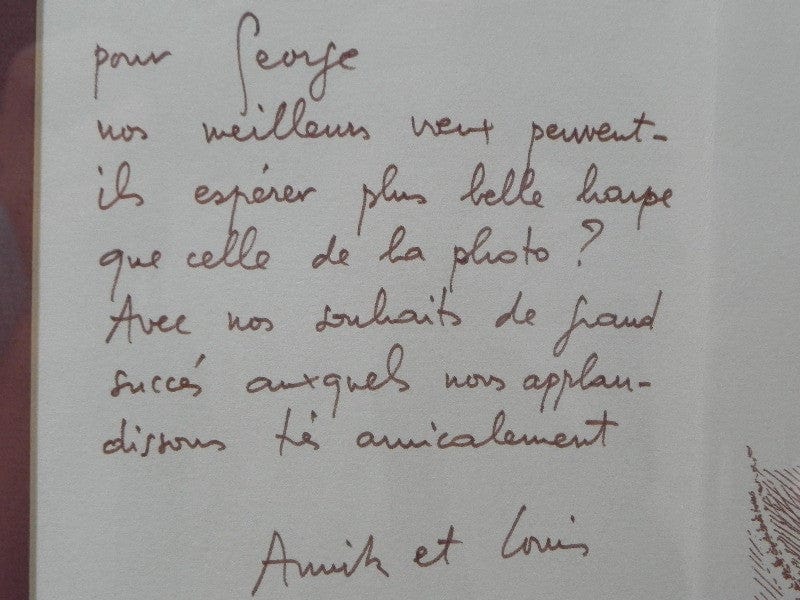 pour George
nos meilleurs vœux peuvent-
ils espérer plus belle harpe
que celle de la photo ?
Avec nos souhaits de grand
succés auxquels nous applau-
dissons très amicalement
Annik et Louis